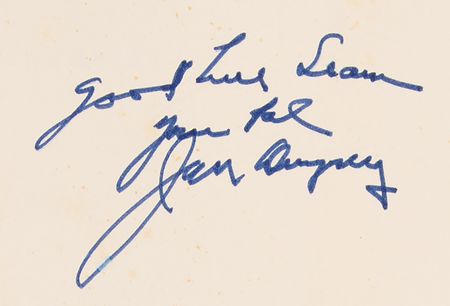 Good Luck Sean
Your Pal
Jack Dempsey